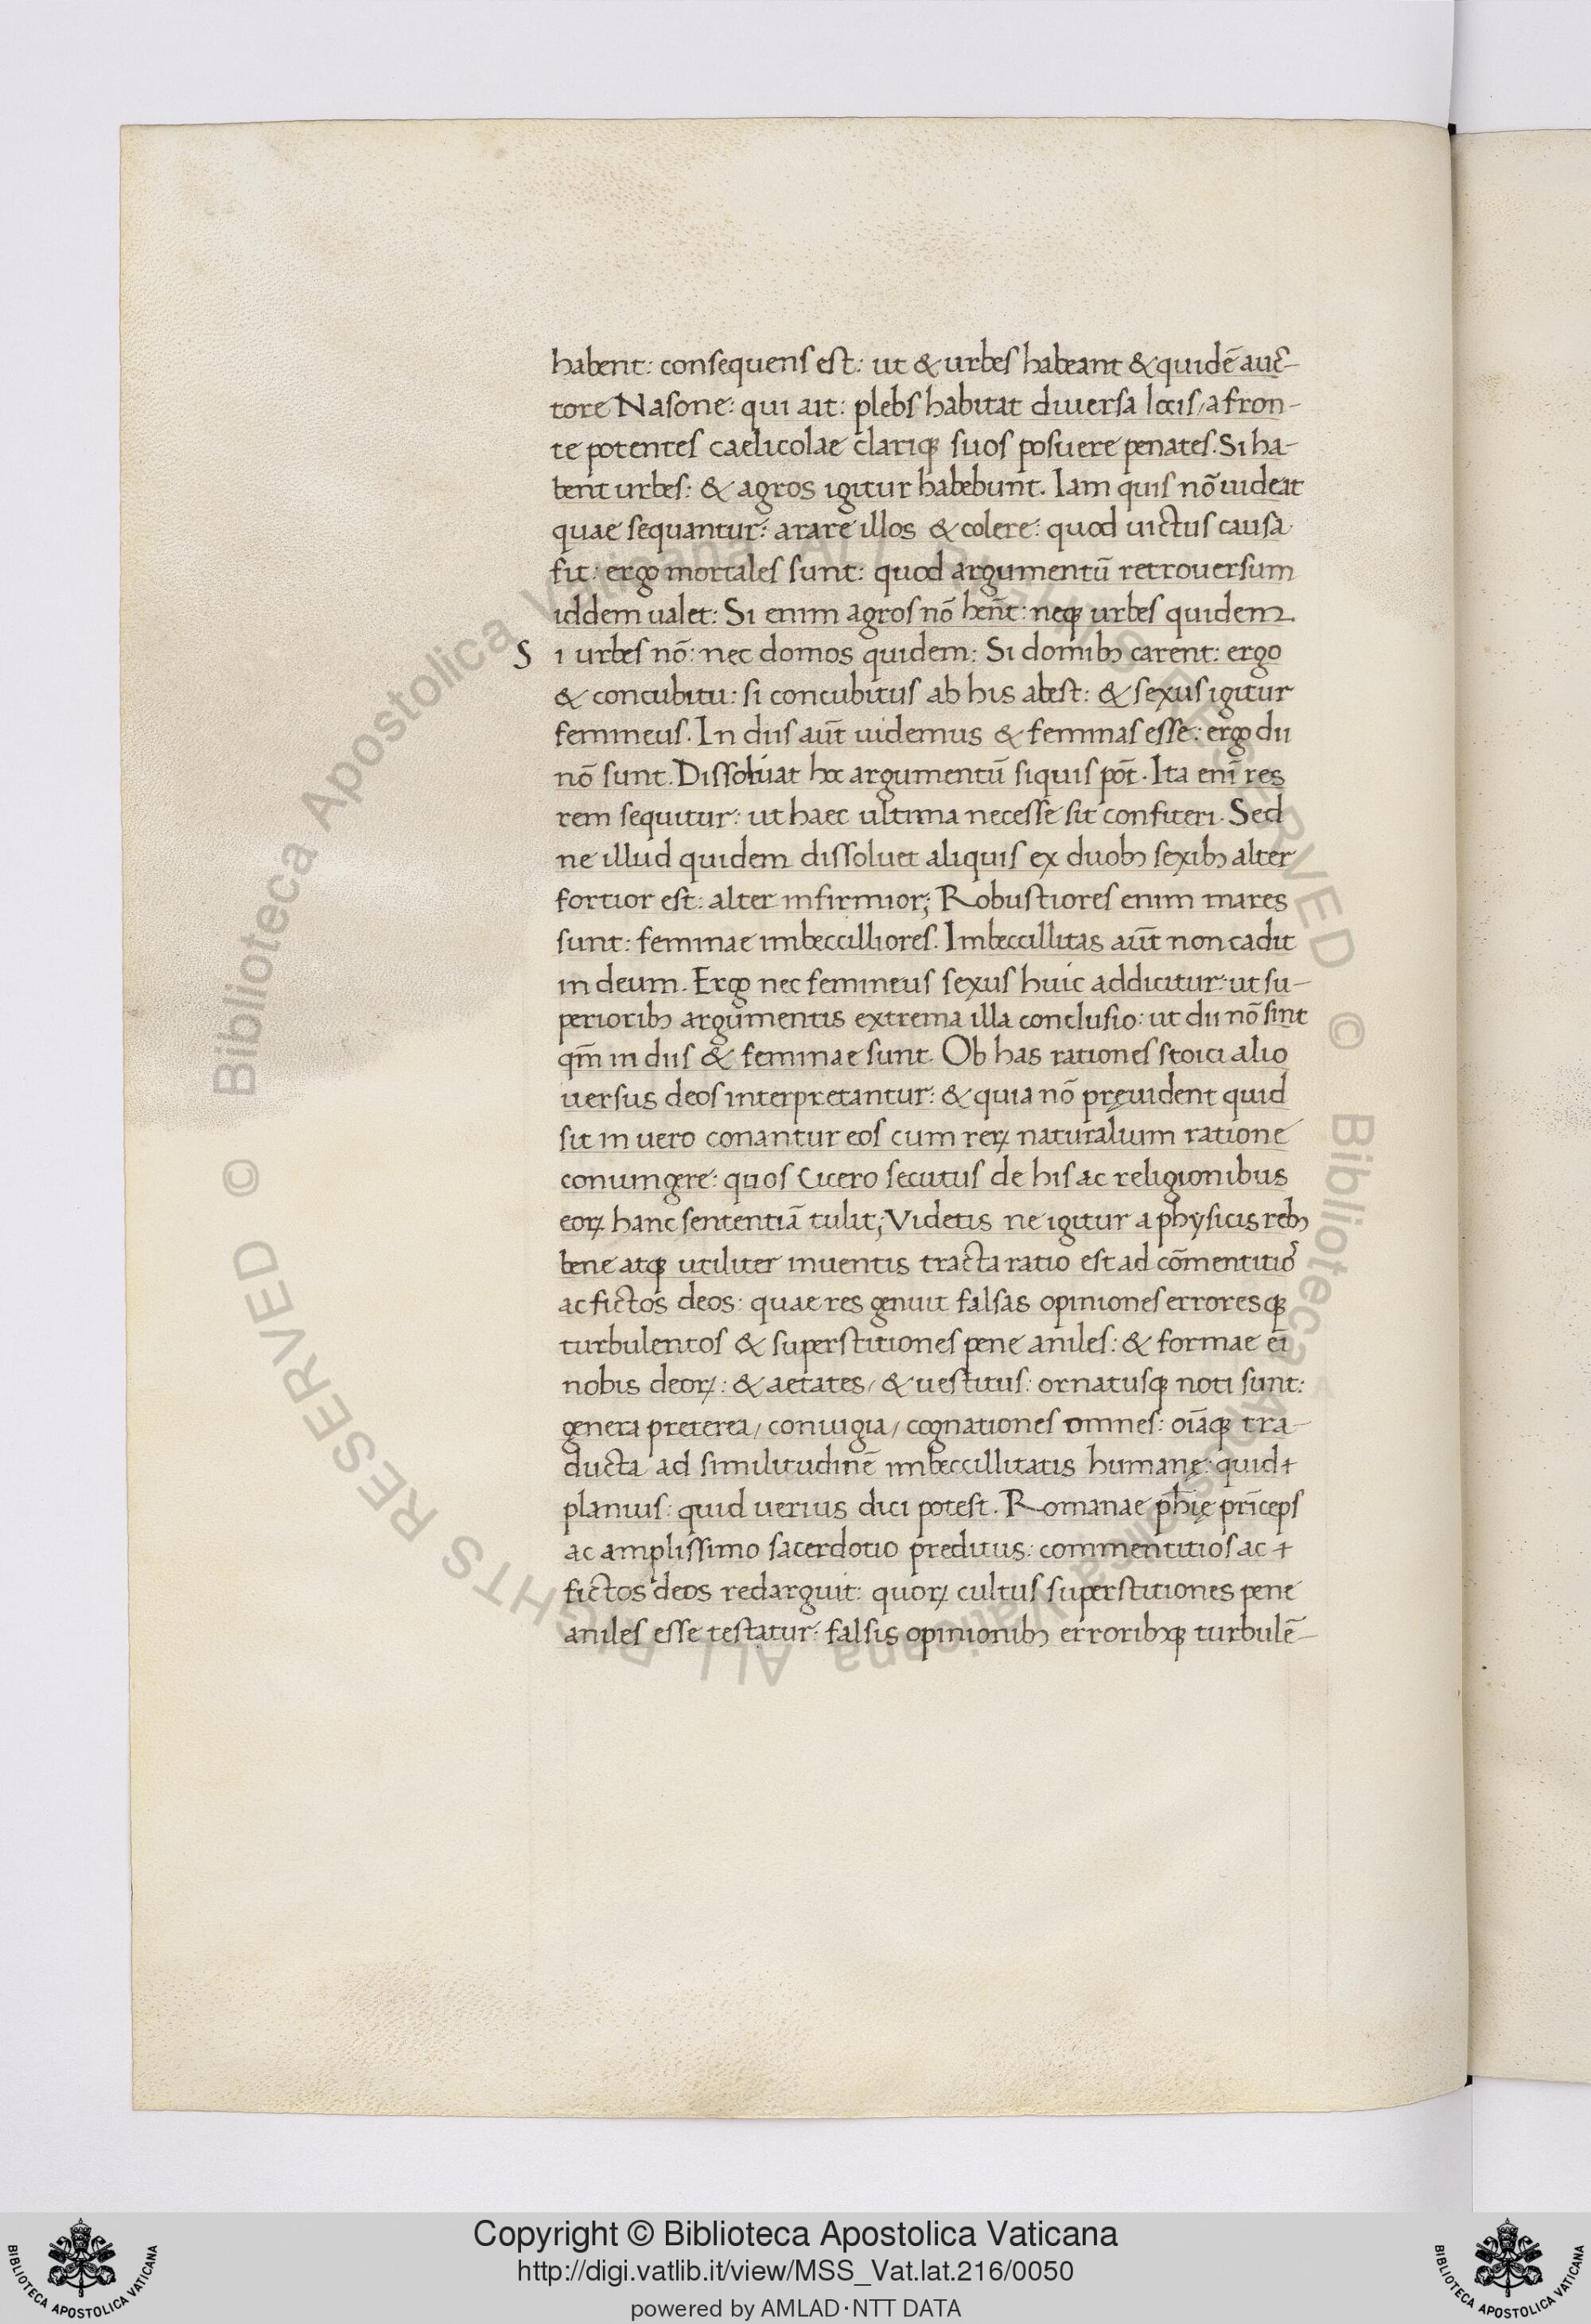 habent: consequens est: ut & urbes habeant & quidē auc̄-
tore Nasone: qui ait: plebs habitat diuersa locis/ a fron-
te potentes caelicolae clariq; suos posuere penates. Si ha-
bent urbes: & agros igitur habebunt. Iam quis nō uideat
quae sequantur: arare illos & colere: quod uictus causa
fit: ergo mortales sunt: quod argumentū retrouersum
iddem ualet: Si enim agros nō hēnt: neq; urbes quidem.
Si urbes nō: nec domos quidem: Si domib; carent: ergo
& concubitu: si concubitus ab his abest: & sexus igitur
femineus. In diis aūt uidemus & feminas esse: ergo dii
nō sunt. Dissoluat hoc argumentū siquis pōt. Ita enī res
rem sequitur: ut haec ultima necesse sit confiteri. Sed
ne illud quidem dissoluet aliquis ex duob; sexib; alter
fortior est: alter infirmior; Robustiores enim mares
sunt: feminae imbeccilliores. Imbeccillitas aūt non cadit
in deum. Ergo nec femineus sexus huic addicitur: ut su-
periorib; argumentis extrema illa conclusio: ut dii nō sint
qm̄ in diis & feminae sunt. Ob has rationes stoici alio
uersus deos interpretantur: & quia nō pręuident quid
sit in uero conantur eos cum rerꝝ naturalium ratione
coniungere: quos Cicero secutus de his ac religionibus
eorꝝ hanc sententiā tulit; Videtis ne igitur a physicis reb;
bene atq; utiliter inuentis tracta ratio est ad cōmentitios
ac fictos deos: quae res genuit falsas opiniones erroresq;
turbulentos & superstitiones pene aniles: & formae ei
nobis deorꝝ: & aetates/ & uestitus: ornatusq; noti sunt:
genera preterea/ coniugia/ cognationes omnes: oīaq; tra-
ducta ad similitudinē imbeccillitatis humanę: quid
planius: quid uerius dici potest. Romanae phīę prīceps
ac amplissimo sacerdotio preditus: commentitios ac
fictos deos redarguit: quorꝝ cultus superstitiones pene
aniles esse testatur: falsis opinionib; errorib;q; turbulē-
Copyright © Biblioteca Apostolica Vaticana
http://digi.vatlib.it/view/MSS_Vat.lat.216/0050
powered by AMLAD·NTT DATA
BIBLIOTECA APOSTOLICA VATICANA
BIBLIOTECA APOSTOLICA VATICANA
© Biblioteca Apostolica Vaticana ALL RIGHTS RESERVED © Biblioteca Apostolica Vaticana ALL RIGHTS RESERVED